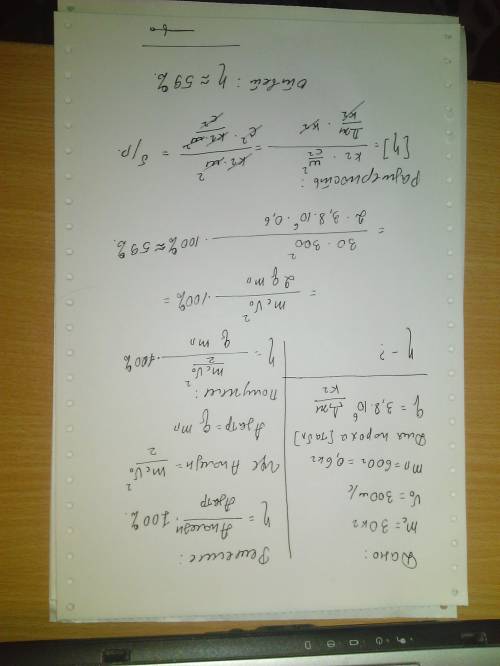 Дано:
m_c = 30 кг
v₀ = 300 м/с
m_п = 600 г = 0,6 кг
Для пороха [табл]
q = 3,8·10⁶ Дж/кг
η - ?
Решение:
η = A_полезн/A_затр · 100%.
где A_полезн = m_c v₀²/2
A_затр = q m_п
Получили:
η = (m_c v₀²/2)/(q m_п) · 100%
= m_c v₀²/(2 q m_п) · 100% =
= 30 · 300²/(2 · 3,8 · 10⁶ · 0,6) · 100% ≈ 59%.
Размерность:
[η] = (кг · м²/с²)/(Дж/кг · кг) = (кг·м²/с²)/(кг·м²/с²) = б/р.
Ответ: η ≈ 59%.